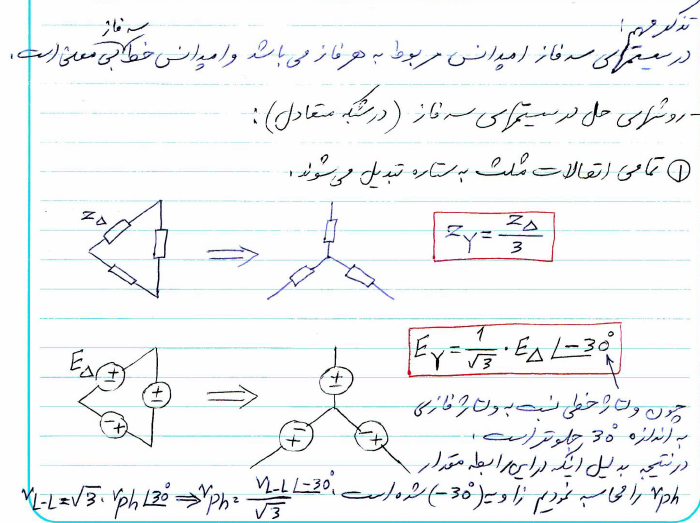 تذکر مهم:
سه فاز
در سیستمهای سه فاز امپدانس مربوط به هر فاز می باشد و امپدانس خط بی معنی است.
- روشهای حل در سیستمهای سه فاز (در شبکه متعادل):
① تمامی اتصالات مثلث به ستاره تبدیل می شوند.
Z_Δ ⇒ Z_Y = Z_Δ / 3
E_Δ ⇒ E_Y = 1/√3 · E_Δ ∠-30°
چون ولتاژ خطی نسبت به ولتاژ فازی
به اندازه 30° جلوتر است.
در نتیجه به دلیل اینکه در این رابطه مقدار
Vph را محاسبه نمودیم زاویه (-30°) شده است. V_L-L = √3 · Vph ∠30° ⇒ Vph = V_L-L ∠-30° / √3